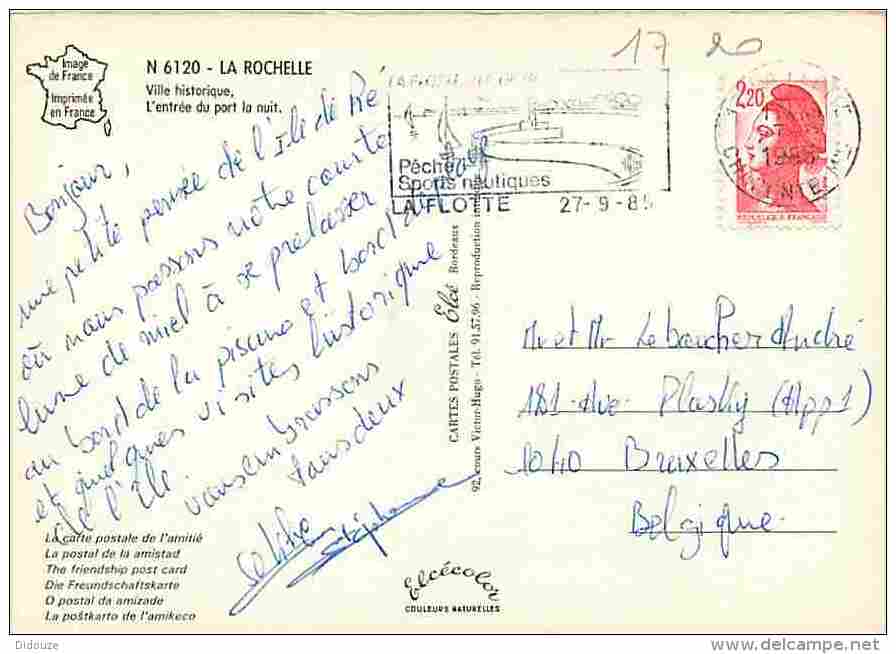 17 20
Image
de France
Imprimée
en France
N 6120 - LA ROCHELLE
Ville historique,
L'entrée du port la nuit.
Pêche
Sports nautiques
LA FLOTTE 27-9-85
2,20
RÉPUBLIQUE FRANÇAISE
Bonjour,
une petite pensée de l'Ile de Ré
où nous passons notre courte
lune de miel à se prelasser
au bord de la piscine et bord de
et quelques visites historique
de l'île.
vous embrassons
tous deux
Stéphane
CARTES POSTALES Elcé Bordeaux
92, cours Victor-Hugo - Tél. 91.57.96 - Reproduction
Mr et Mr Leboucher André
181 Ave Plasky (App 1)
1040 Bruxelles
Belgique
La carte postale de l'amitié
La postal de la amistad
The friendship post card
Die Freundschaftskarte
O postal da amizade
La poŝtkarto de l'amikeco
Elcécolor
COULEURS NATURELLES
Didouze
www.delcampe.net